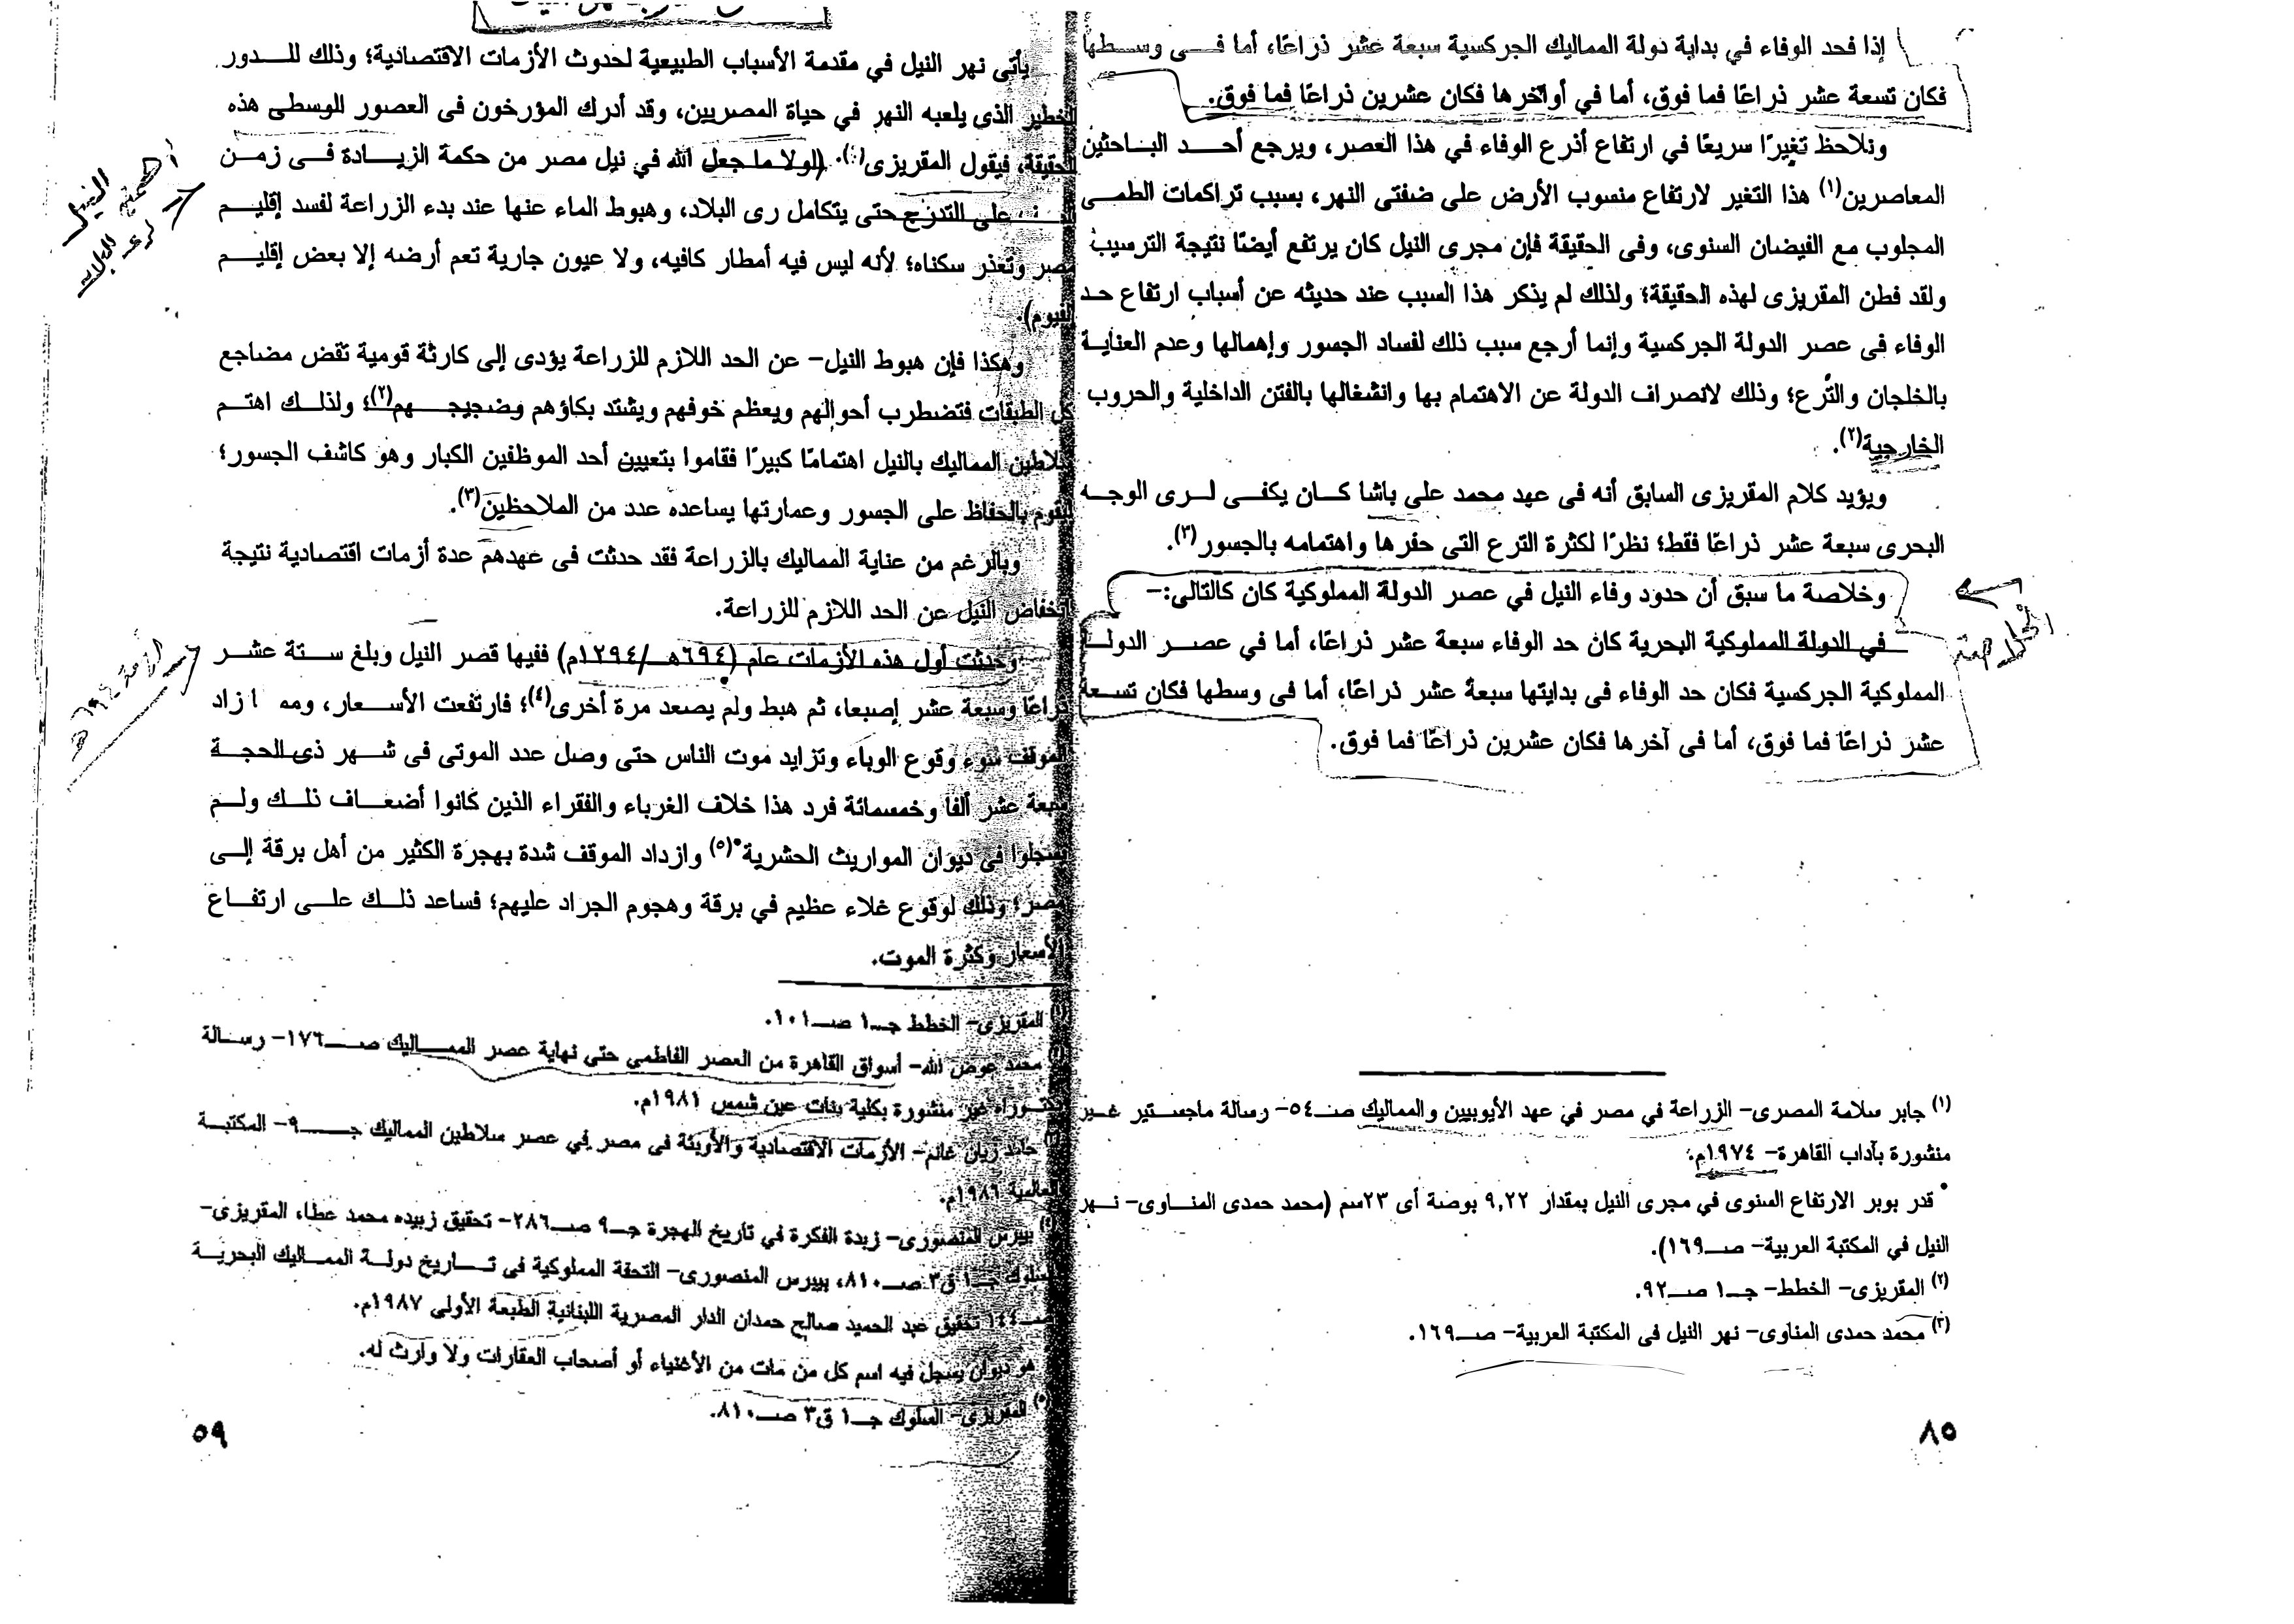 إذا فحد الوفاء في بداية دولة المماليك الجركسية سبعة عشر ذراعًا، أما فى وسطها
فكان تسعة عشر ذراعًا فما فوق، أما في أواخرها فكان عشرين ذراعًا فما فوق.
ونلاحظ تغيرًا سريعًا في ارتفاع أذرع الوفاء في هذا العصر، ويرجع أحد الباحثين
المعاصرين(١) هذا التغير لارتفاع منسوب الأرض على ضفتى النهر، بسبب تراكمات الطمى
المجلوب مع الفيضان السنوى، وفى الحقيقة فإن مجرى النيل كان يرتفع أيضًا نتيجة الترسيب
ولقد فطن المقريزى لهذه الحقيقة؛ ولذلك لم يذكر هذا السبب عند حديثه عن أسباب ارتفاع حد
الوفاء فى عصر الدولة الجركسية وإنما أرجع سبب ذلك لفساد الجسور وإهمالها وعدم العناية
بالخلجان والترع؛ وذلك لانصراف الدولة عن الاهتمام بها وانشغالها بالفتن الداخلية والحروب
الخارجية(٢).
ويؤيد كلام المقريزى السابق أنه فى عهد محمد على باشا كان يكفى لرى الوجه
البحرى سبعة عشر ذراعًا فقط؛ نظرًا لكثرة الترع التى حفرها واهتمامه بالجسور(٣).
وخلاصة ما سبق أن حدود وفاء النيل في عصر الدولة المملوكية كان كالتالى:-
في الدولة المملوكية البحرية كان حد الوفاء سبعة عشر ذراعًا، أما في عصر الدولة
المملوكية الجركسية فكان حد الوفاء فى بدايتها سبعة عشر ذراعًا، أما فى وسطها فكان تسعة
عشر ذراعًا فما فوق، أما فى آخرها فكان عشرين ذراعًا فما فوق.
الخلاصة
(١) جابر سلامة المصرى- الزراعة في مصر في عهد الأيوبيين والمماليك صـ٥٤- رسالة ماجستير غير
منشورة بآداب القاهرة- ١٩٧٤م.
• قدر بوبر الارتفاع السنوى في مجرى النيل بمقدار ٩,٢٢ بوصة أى ٢٣سم (محمد حمدى المناوى- نهر
النيل في المكتبة العربية- صـ١٦٩).
(٢) المقريزى- الخطط- جـ١ صـ٩٢.
(٣) محمد حمدى المناوى- نهر النيل فى المكتبة العربية- صـ١٦٩.
٨٥
يأتى نهر النيل في مقدمة الأسباب الطبيعية لحدوث الأزمات الاقتصادية؛ وذلك للدور
الخطير الذى يلعبه النهر في حياة المصريين، وقد أدرك المؤرخون فى العصور الوسطى هذه
الحقيقة، فيقول المقريزى(١). (لولا ما جعل الله في نيل مصر من حكمة الزيادة فى زمن
على التدرج حتى يتكامل رى البلاد، وهبوط الماء عنها عند بدء الزراعة لفسد إقليم
مصر وتعذر سكناه؛ لأنه ليس فيه أمطار كافيه، ولا عيون جارية تعم أرضه إلا بعض إقليم
الفيوم).
وهكذا فإن هبوط النيل- عن الحد اللازم للزراعة يؤدى إلى كارثة قومية تقض مضاجع
كل الطبقات فتضطرب أحوالهم ويعظم خوفهم ويشتد بكاؤهم وضجيجهم(٢)؛ ولذلك اهتم
سلاطين المماليك بالنيل اهتمامًا كبيرًا فقاموا بتعيين أحد الموظفين الكبار وهو كاشف الجسور؛
ليقوم بالحفاظ على الجسور وعمارتها يساعده عدد من الملاحظين(٣).
وبالرغم من عناية المماليك بالزراعة فقد حدثت فى عهدهم عدة أزمات اقتصادية نتيجة
انخفاض النيل عن الحد اللازم للزراعة.
وحدثت أول هذه الأزمات عام (٦٩٤هـ/١٢٩٤م) ففيها قصر النيل وبلغ ستة عشر
ذراعًا وسبعة عشر إصبعا، ثم هبط ولم يصعد مرة أخرى(٤)؛ فارتفعت الأسعار، ومما زاد
الموقف سوء وقوع الوباء وتزايد موت الناس حتى وصل عدد الموتى فى شهر ذى الحجة
سبعة عشر ألفا وخمسمائة فرد هذا خلاف الغرباء والفقراء الذين كانوا أضعاف ذلك ولم
يسجلوا فى ديوان المواريث الحشرية•(٥) وازداد الموقف شدة بهجرة الكثير من أهل برقة إلى
مصر؛ وذلك لوقوع غلاء عظيم في برقة وهجوم الجراد عليهم؛ فساعد ذلك على ارتفاع
الأسعار وكثرة الموت.
أهمية النيل
لرى البلاد
أزمة ٦٩٤هـ
(١) المقريزى- الخطط جـ١ صـ١٠١.
محمد عوض الله- أسواق القاهرة من العصر الفاطمى حتى نهاية عصر المماليك صـ١٧٦- رسالة
دكتوراه غير منشورة بكلية بنات عين شمس ١٩٨١م.
حامد زيان غانم- الأزمات الاقتصادية والأوبئة فى مصر في عصر سلاطين المماليك جـ٩- المكتبة
العالمية ١٩٨٦م.
(٤) بيبرس المنصورى- زبدة الفكرة في تاريخ الهجرة جـ٩ صـ٢٨٦- تحقيق زبيده محمد عطا، المقريزى-
السلوك جـ١ ق٣ صـ٨١٠، بيبرس المنصورى- التحفة المملوكية فى تاريخ دولة المماليك البحرية
صـ١٤٤ تحقيق عبد الحميد صالح حمدان الدار المصرية اللبنانية الطبعة الأولى ١٩٨٧م.
هو ديوان يسجل فيه اسم كل من مات من الأغنياء أو أصحاب العقارات ولا وارث له.
(٥) المقريزى- السلوك جـ١ ق٣ صـ٨١٠.
٥٩